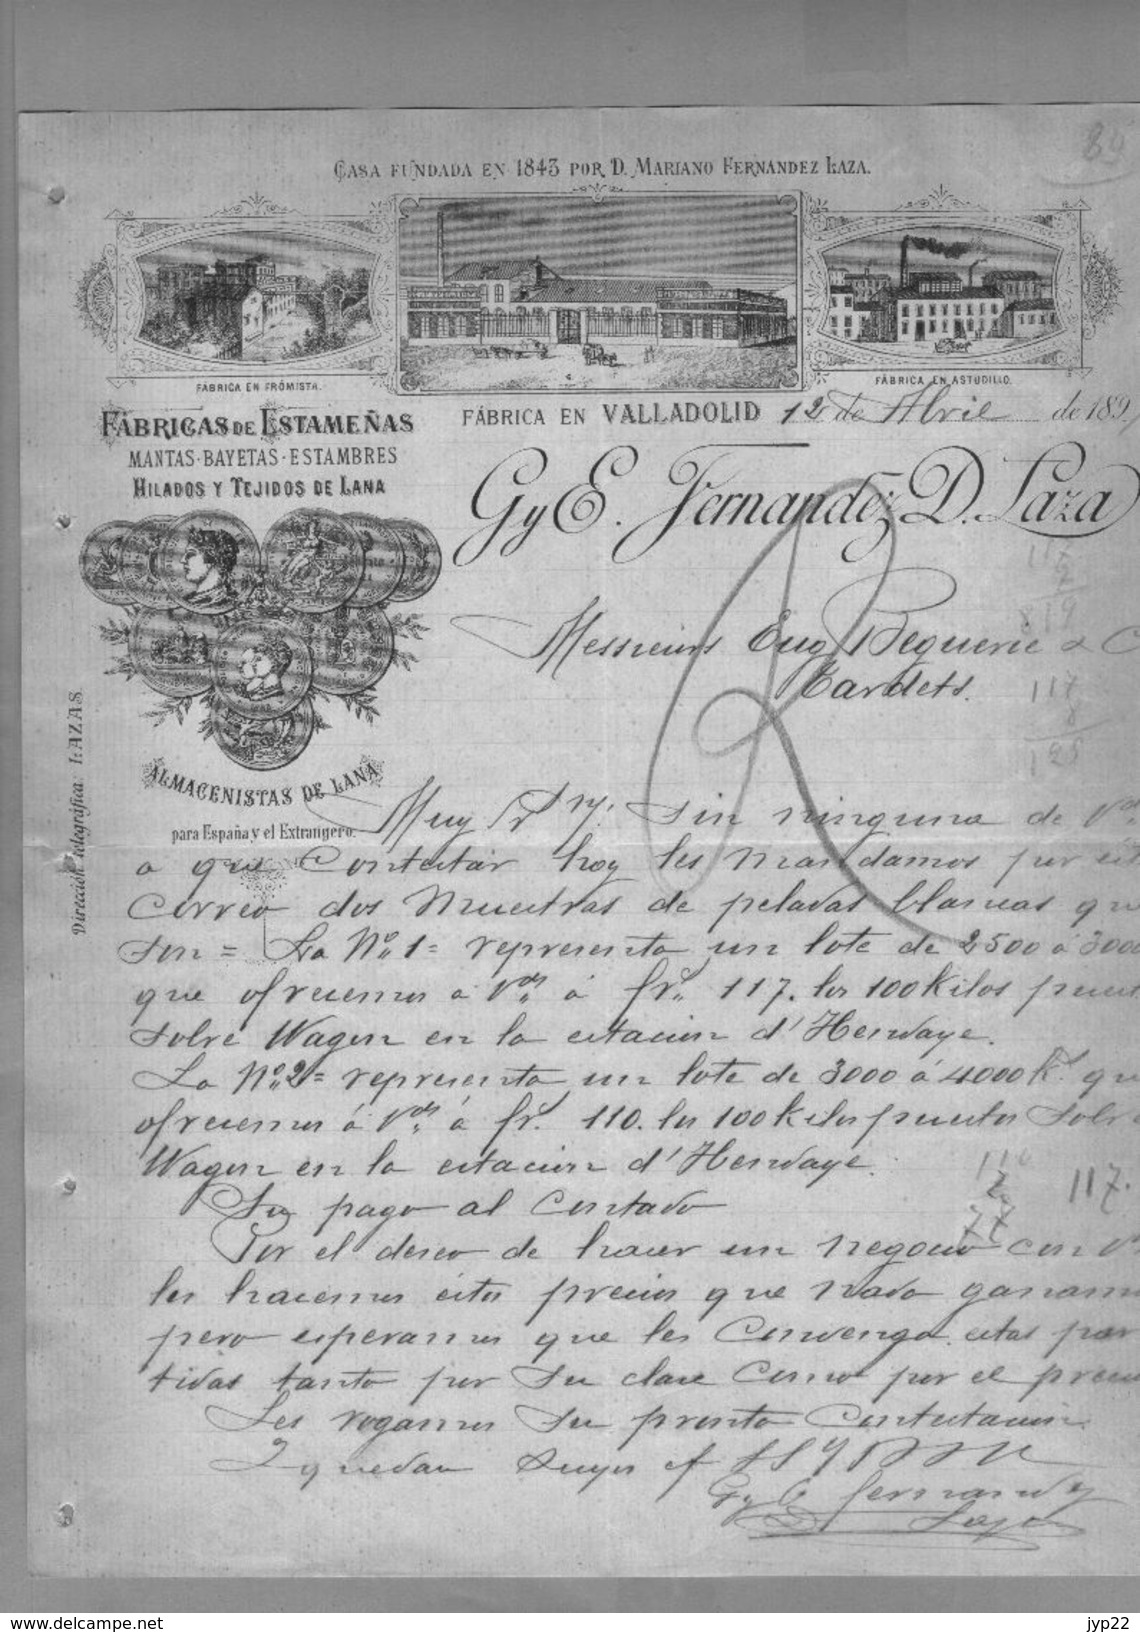 89
CASA FUNDADA EN 1843 POR D. MARIANO FERNANDEZ LAZA.
FÁBRICA EN FRÓMISTA.
FÁBRICA EN ASTUDILLO.
FÁBRICAS DE ESTAMEÑAS
MANTAS-BAYETAS-ESTAMBRES
HILADOS Y TEJIDOS DE LANA
FÁBRICA EN VALLADOLID 12 de Abril de 189
G y E. Fernandez D. Laza
Messieurs Eug Beguerie & C
Tardets.
ALMACENISTAS DE LANA
para España y el Extrangero.
Dirección telegráfica: LAZAS
Muy Sr ms: Sin ninguna de Vds
a que Contestar hoy les mandamos por este
Correo dos Muestras de peladas blancas que
son = La Nº 1 = representa un lote de 2500 á 3000
que ofrecemos á Vds á frs 117. los 100 Kilos puest
sobre Wagon en la estacion d'Hendaye.
La Nº 2 = representa un lote de 3000 á 4000 K. que
ofrecemos á Vds á frs. 110. los 100 kilos puestos sobre
Wagon en la estacion d'Hendaye.
Su pago al Contado
Por el deseo de hacer un negocio con V
les hacemos estos precios que nada ganamos
pero esperamos que les Convenga estas par
tidas tanto por su clase Como por el precio
Les rogamos su pronta Contestacion
Y quedan suyos
G y E Fernandez
D Laza
117
8
117.
www.delcampe.net
jyp22